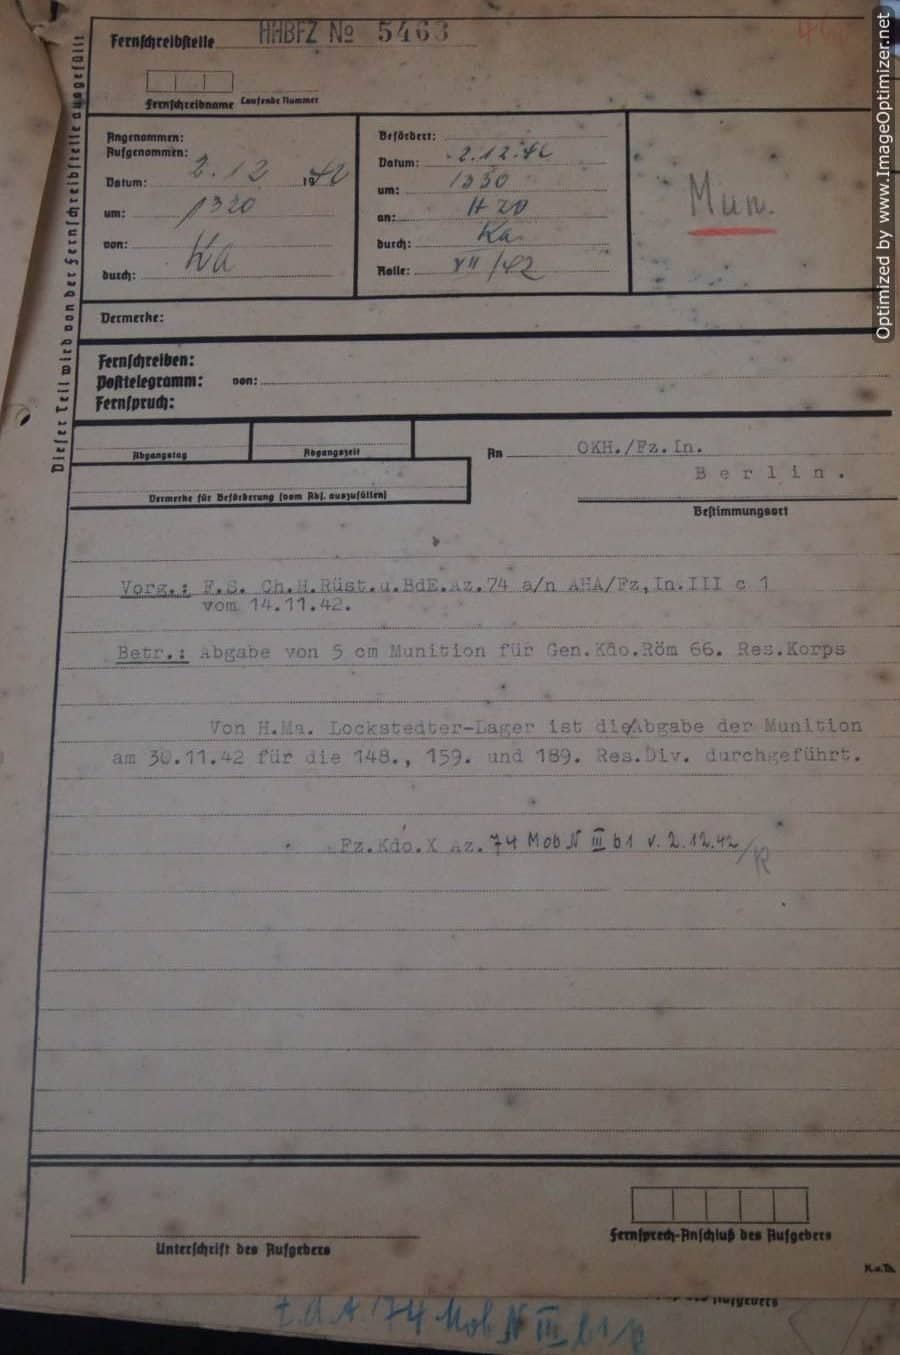 Fernschreibstelle HHBFZ No 5463
Fernschreibname Laufende Nummer
Angenommen:
Aufgenommen:
Datum: 2.12 1942
um: 1320
von:
durch: Ka
Befördert:
Datum: 2.12.42
um: 1330
an: H 20
durch: Ka
Rolle: XII/42
Mun.
Vermerke:
Fernschreiben:
Posttelegramm: von:
Fernspruch:
Abgangstag Abgangszeit
Vermerke für Beförderung (vom Abs. auszufüllen)
An OKH./Fz.In.
Berlin.
Bestimmungsort
Vorg.: F.S. Ch.H.Rüst.u.BdE.Az.74 a/n AHA/Fz,In.III c 1
vom 14.11.42.
Betr.: Abgabe von 5 cm Munition für Gen.Kdo.Röm 66. Res.Korps
Von H.Ma. Lockstedter-Lager ist die/Abgabe der Munition
am 30.11.42 für die 148., 159. und 189. Res.Div. durchgeführt.
Fz.Kdo.X Az. 74 Mob N III b1 v. 2.12.42
Unterschrift des Aufgebers
Fernsprech-Anschluß des Aufgebers
K.u.Th.
Aufgebers
z.d.A. 74 Mob N III b1
Dieser Teil wird von der Fernschreibstelle ausgefüllt
Optimized by www.ImageOptimizer.net